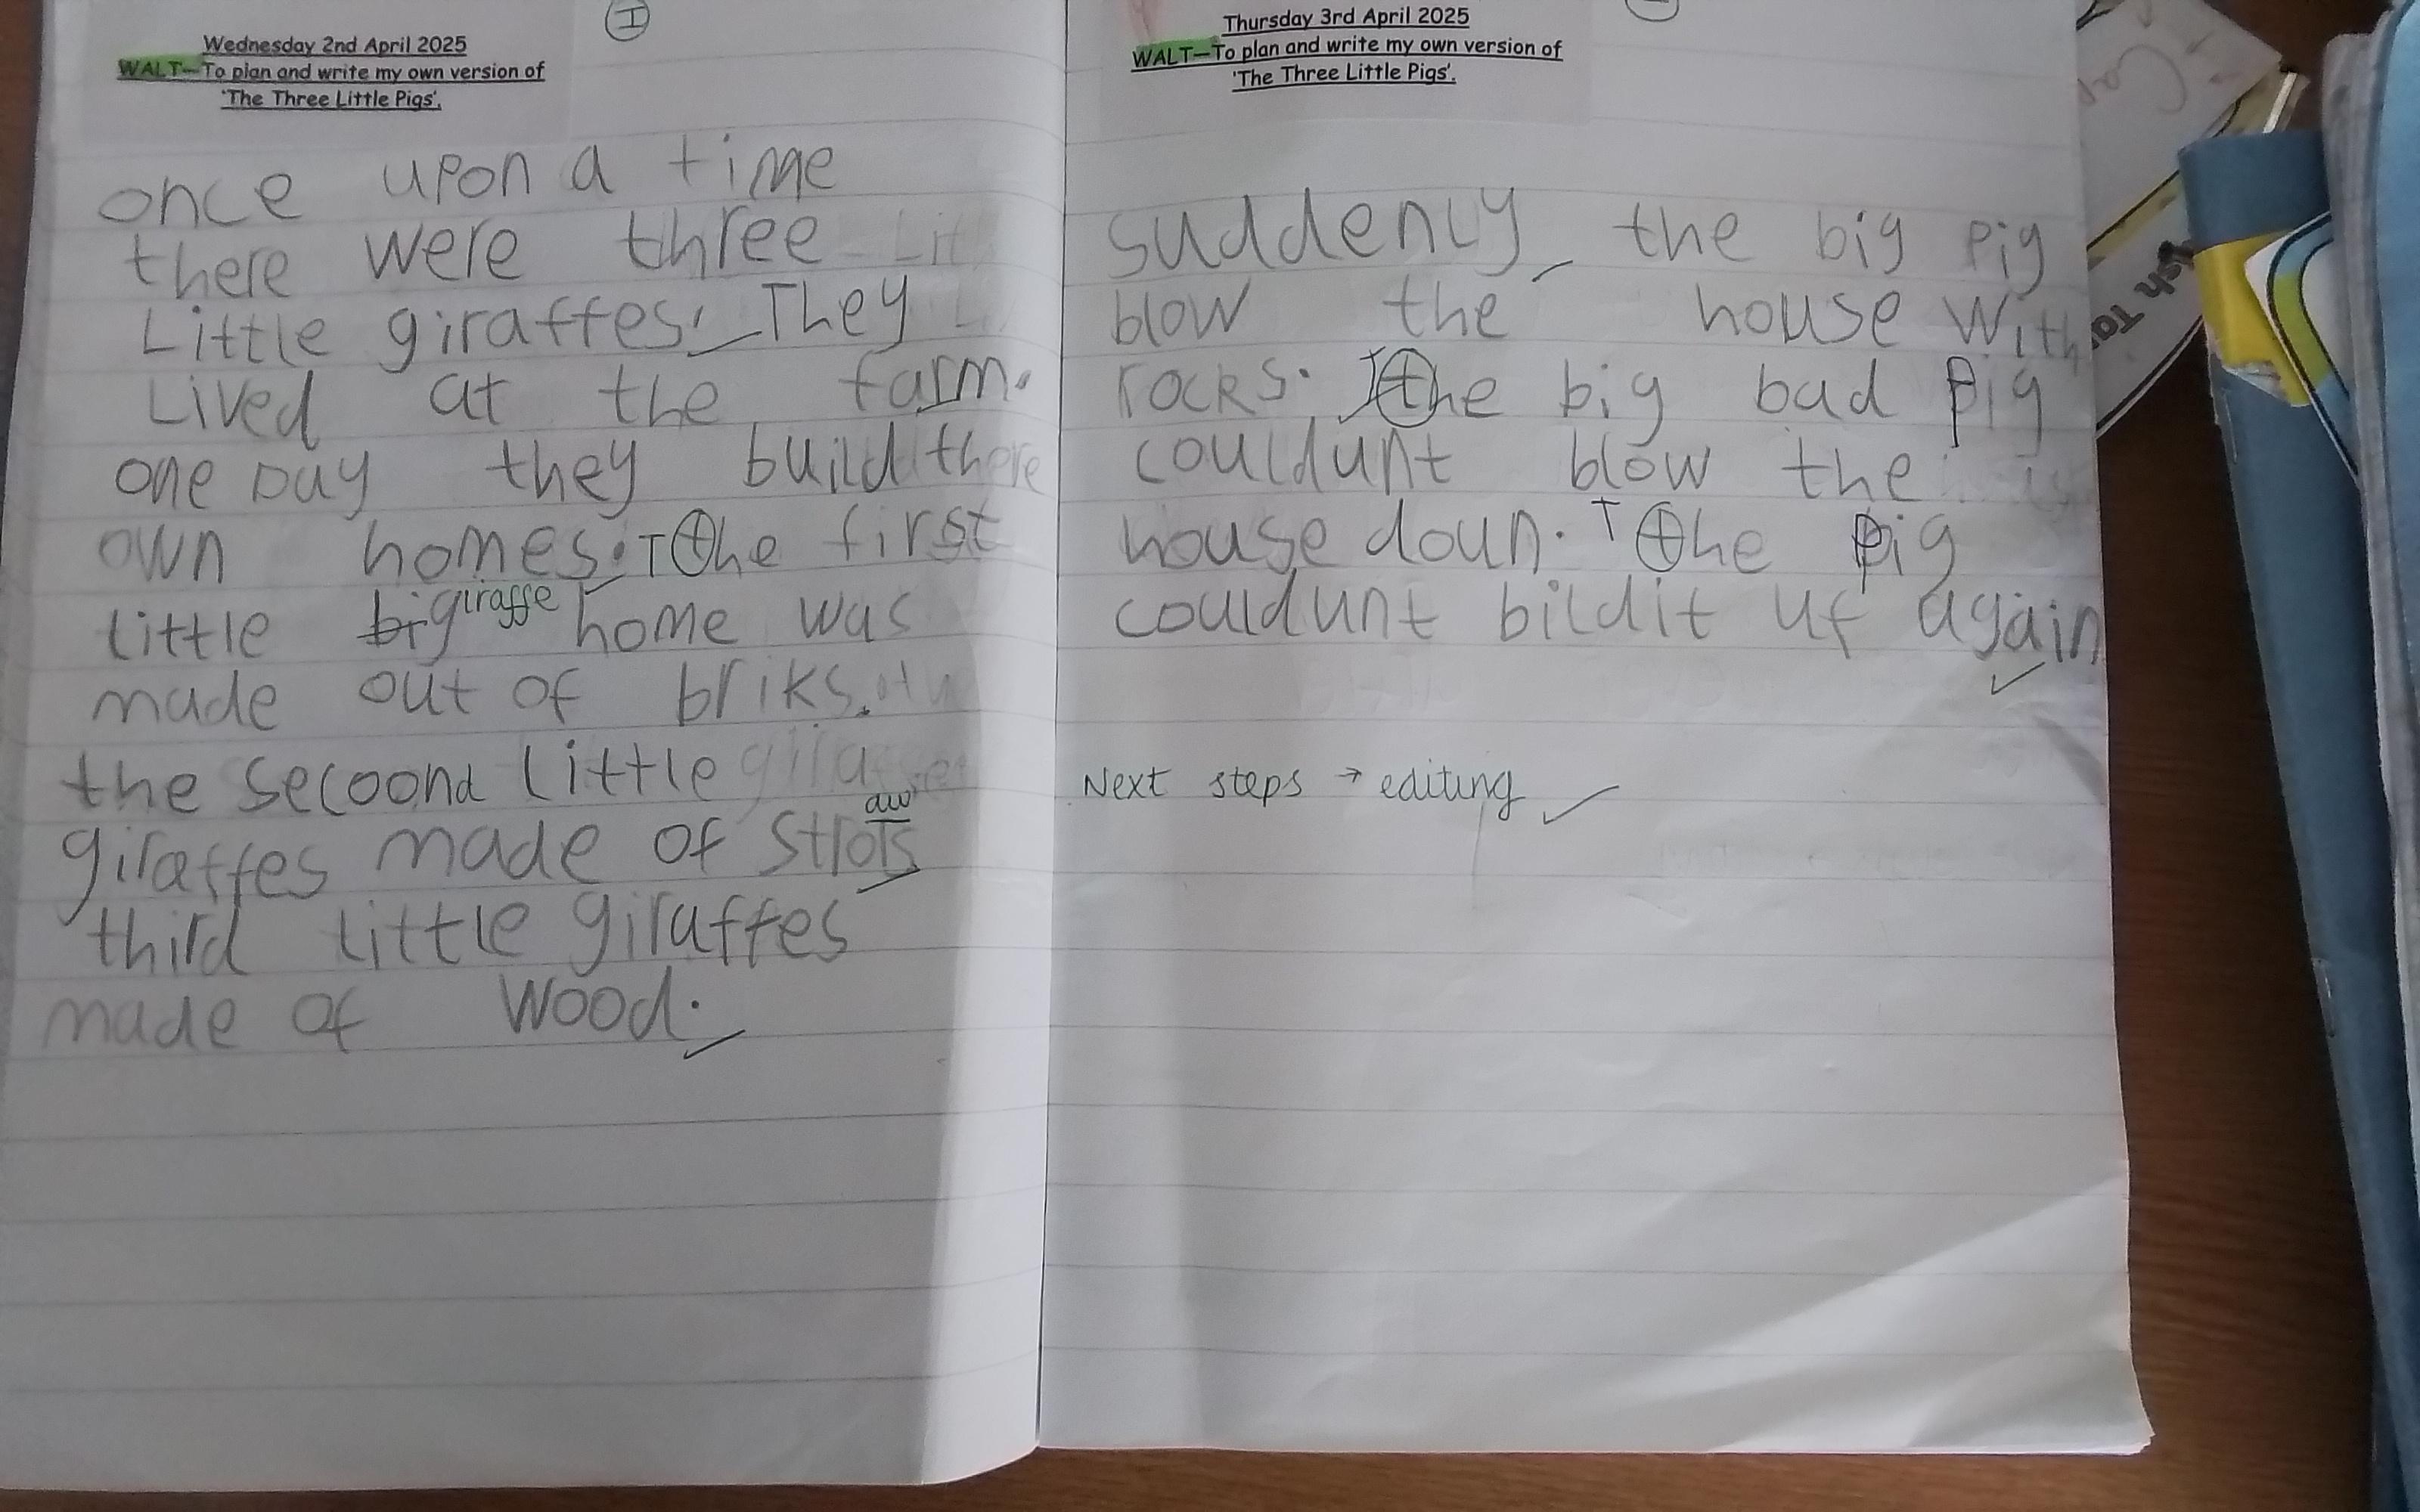 I
Wednesday 2nd April 2025
WALT—To plan and write my own version of
'The Three Little Pigs'.
once upon a time
there were three Lit
Little giraffes. They
Lived at the farm.
one Day they build there
own homes. T the first
little big giraffe home was
made out of briks.
the secoond little
giraffes made of strots aw
third little giraffes
made of wood.
Thursday 3rd April 2025
WALT—To plan and write my own version of
'The Three Little Pigs'.
suddenly, the big pig
blow the house with
rocks. T the big bad pig
couldunt blow the
house doun. T the pig
couldunt bildit uf again
Next steps → editing